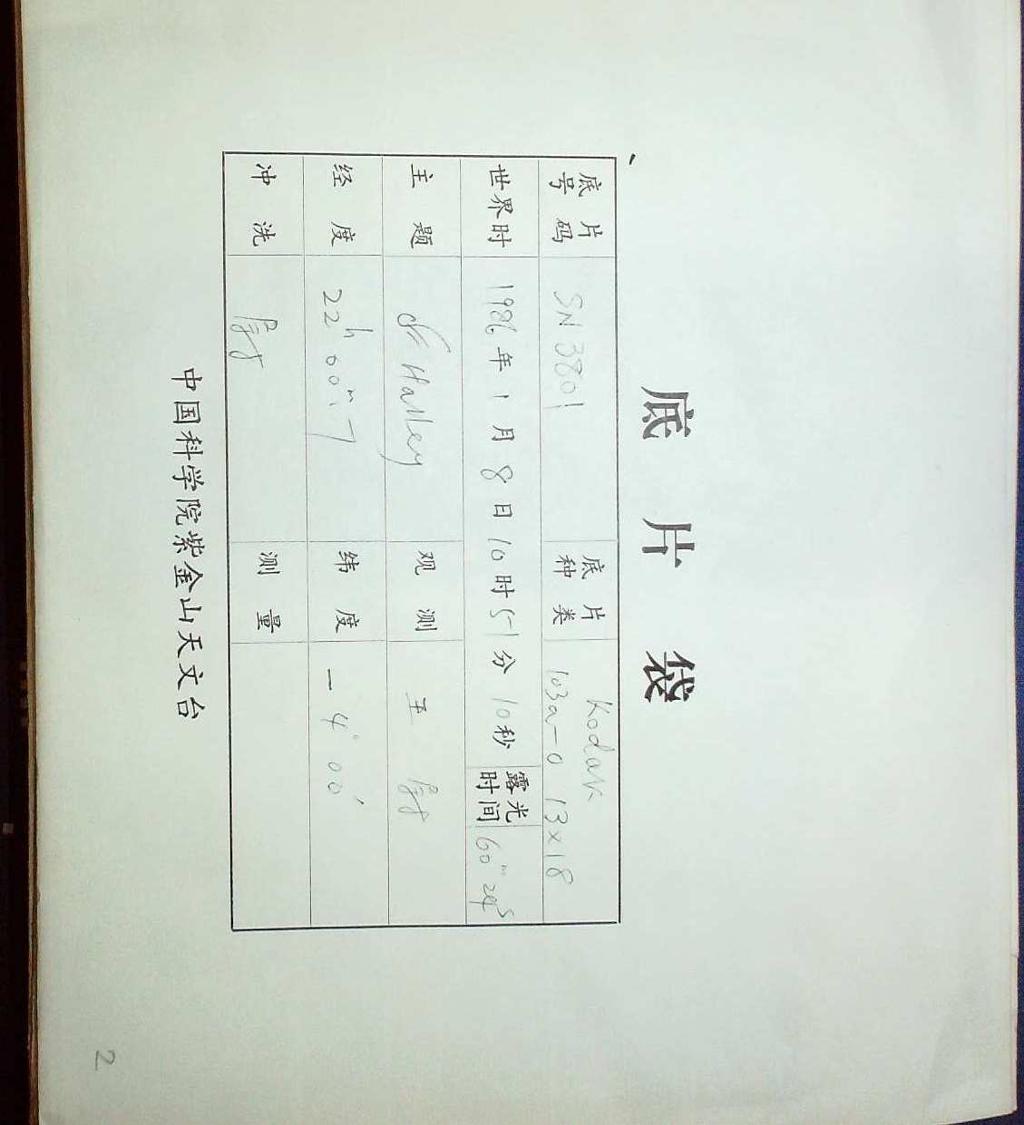 底片袋
底片号码 SN 3801 底片种类 Kodak 103a-O 13×18
世界时 1986年1月8日10时51分10秒 露光时间 60ᵐ24ˢ
主题 Halley 观测 王
经度 22ʰ00ᵐ.7 纬度 -4°00′
冲洗 测量
中国科学院紫金山天文台
2